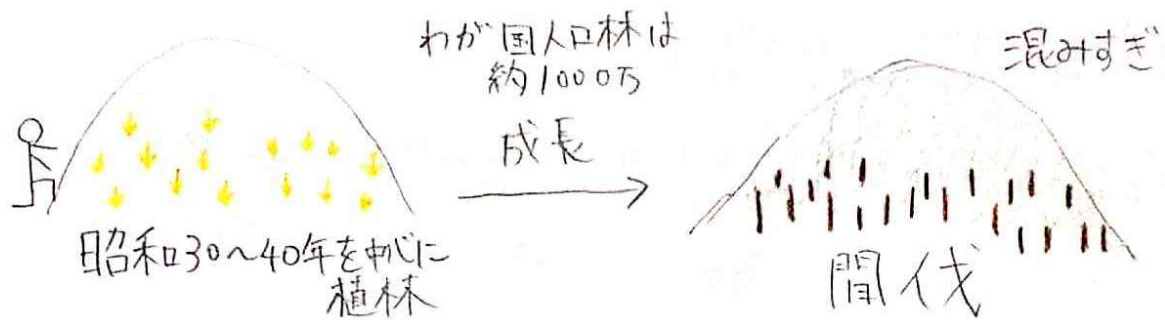 わが国人口林は
約1000万
成長
混みすぎ
昭和30〜40年を中心に
植林
間伐